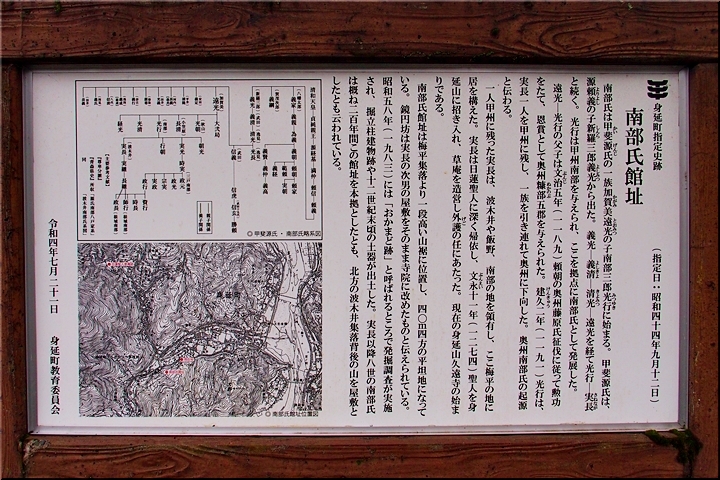 身延町指定史跡
南部氏館址
（指定日：昭和四十四年九月十二日）
南部氏は甲斐源氏の一族加賀美遠光の子南部三郎光行に始まる。甲斐源氏は、
源頼義の子新羅三郎義光から出た。義光―義清―清光―遠光を経て光行―実長
と続く。光行は甲州南部を与えられ、ここを拠点に南部氏として発展した。
遠光・光行の父子は文治五年（一一八九）頼朝の奥州藤原氏征伐に従って勲功
をたて、恩賞として奥州糠部五郡を与えられた。建久二年（一一九一）光行は、
実長一人を甲州に残し、一族を引き連れて奥州に下向した。奥州南部氏の起源
と伝わる。
一人甲州に残った実長は、波木井や飯野、南部の地を領有し、ここ梅平の地に
居を構えた。実長は日蓮聖人に深く帰依し、文永十一年（一二七四）聖人を身
延山に招き入れ、草庵を造営し外護の任にあたった。現在の身延山久遠寺の始ま
りである。
南部氏館址は梅平集落より一段高い山裾に位置し、四〇ｍ四方の平坦地になって
いる。鏡円坊は実長の次男の屋敷をそのまま寺院に改めたものと伝えられている。
昭和五八年（一九八三）には「おかまど跡」と呼ばれるところで発掘調査が実施
され、掘立柱建物跡や十二世紀末頃の土器が出土した。実長以降八世の南部氏
は概ね二百年間この館址を本拠としたとも、北方の波木井集落背後の山を屋敷と
したとも云われている。
清和天皇―貞純親王―源経基―満仲―頼信―頼義
◎甲斐源氏・南部氏略系図
◎南部氏館址位置図
令和四年七月二十一日
身延町教育委員会